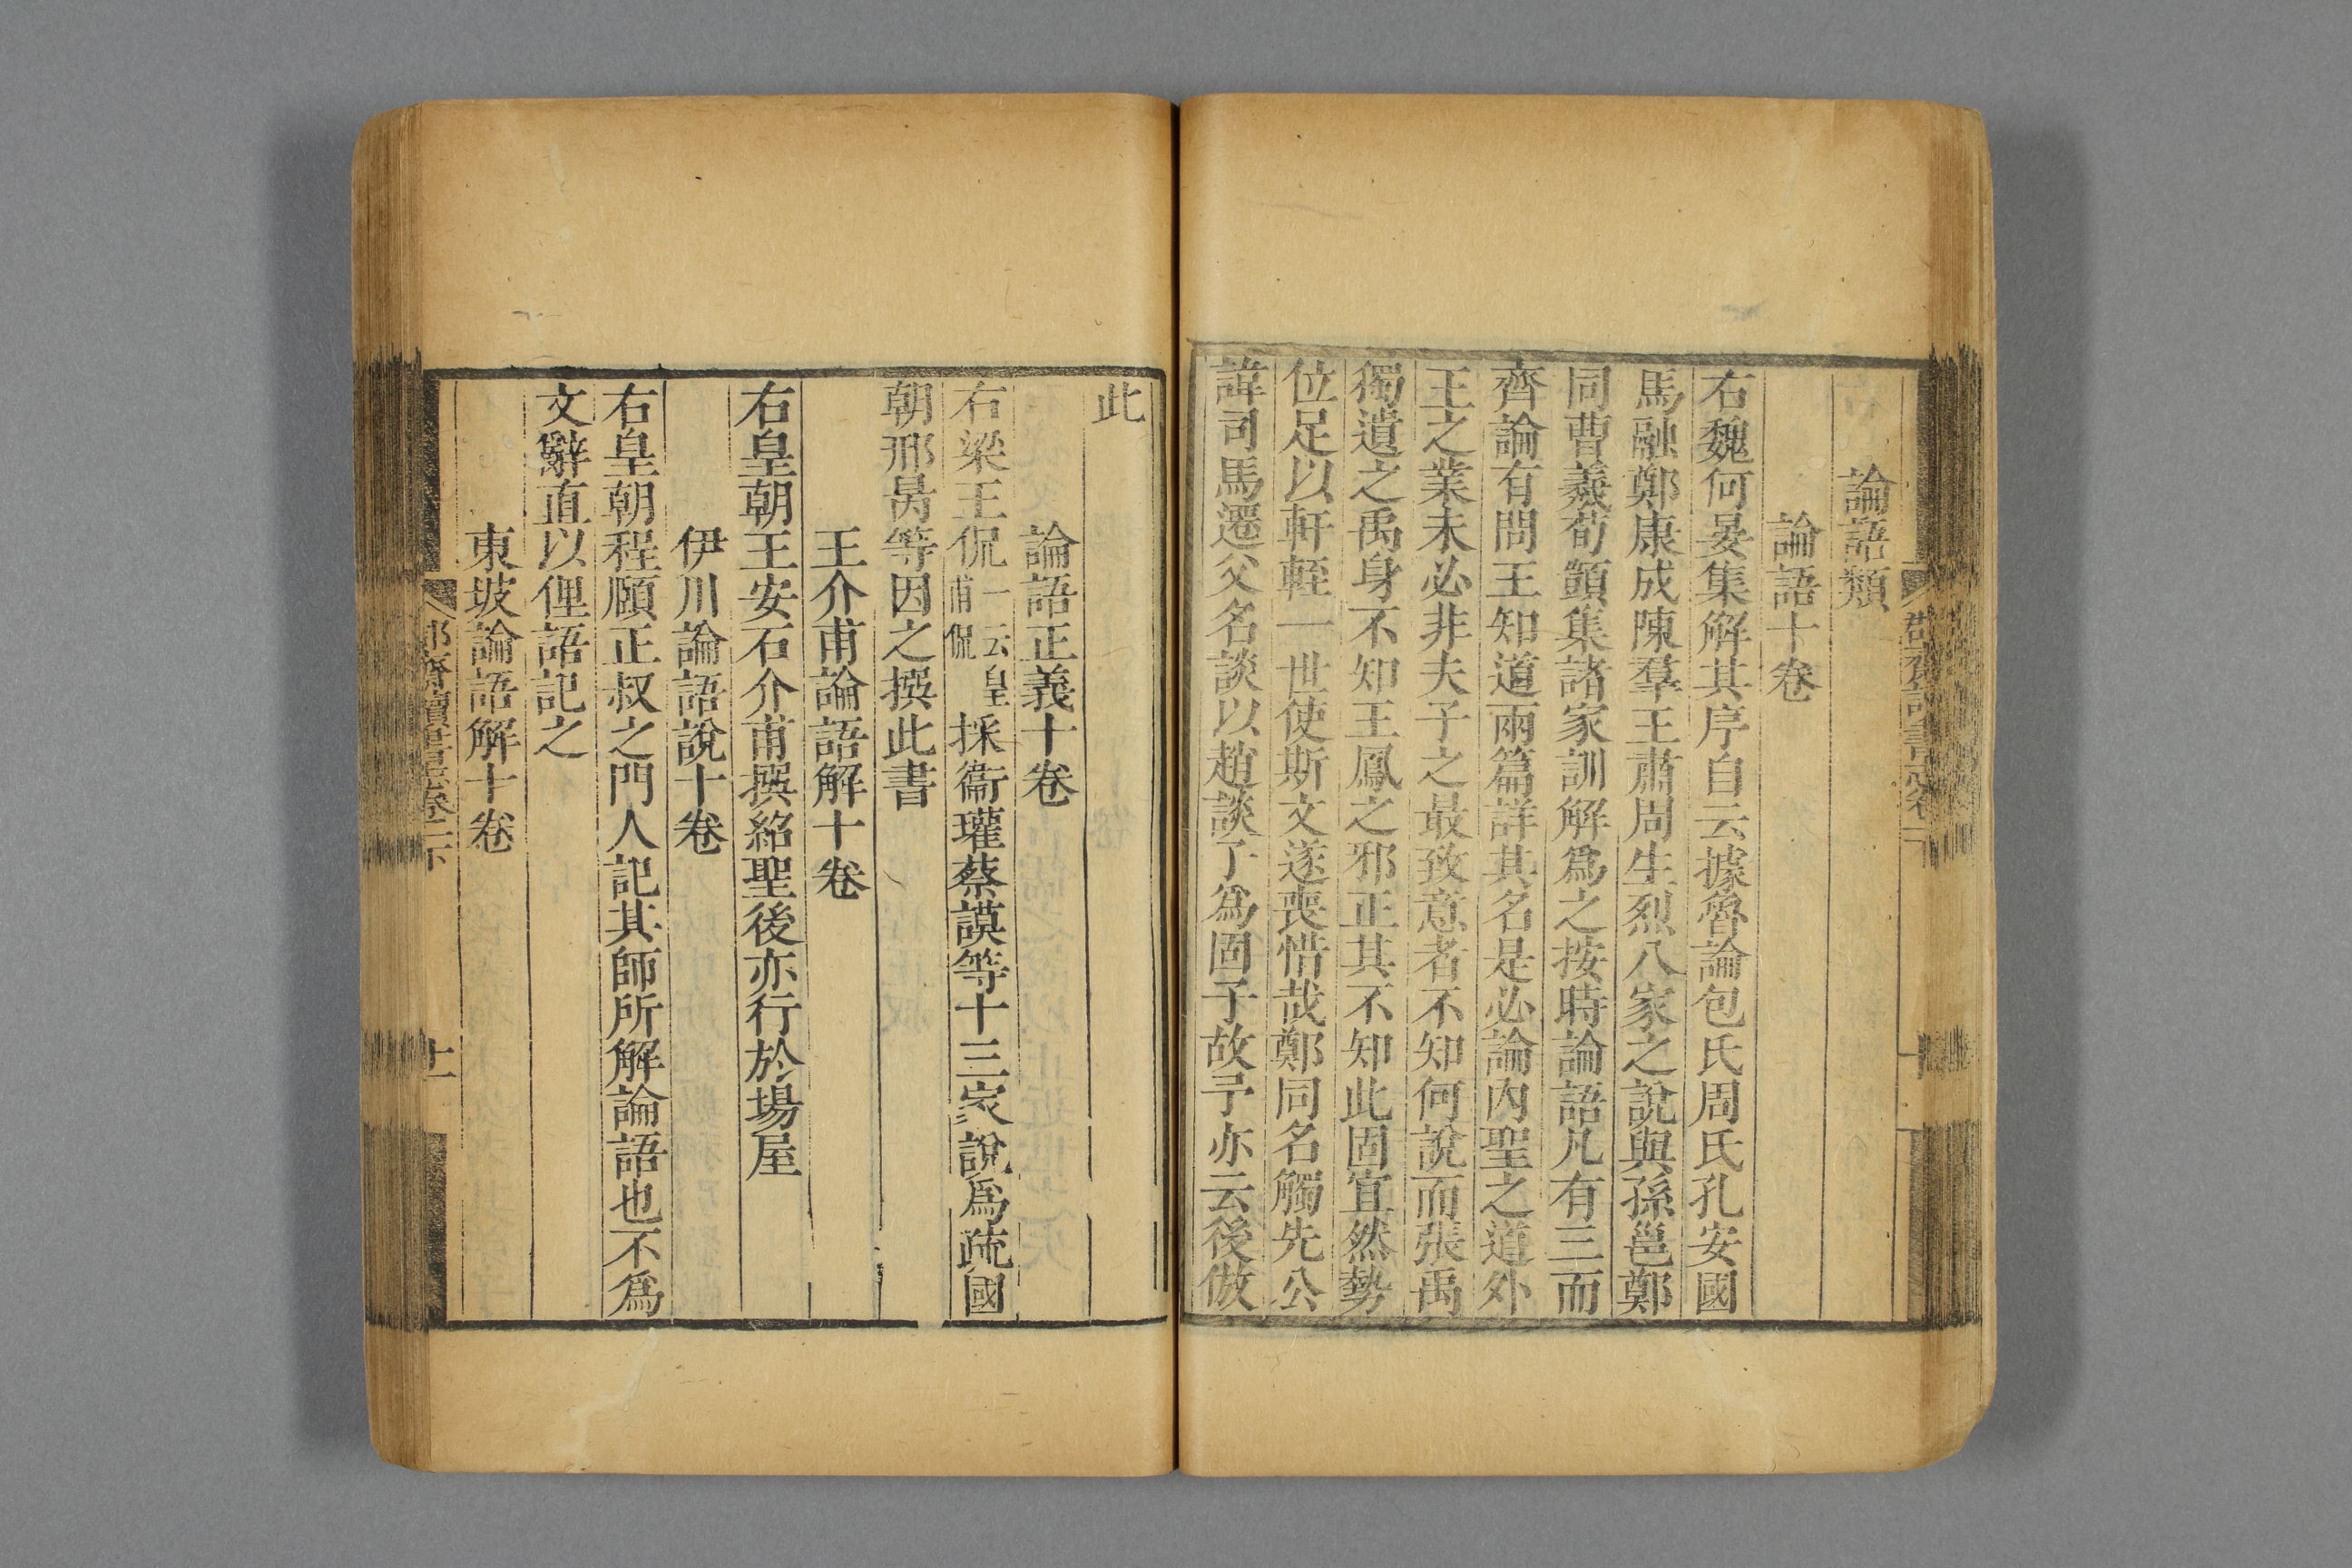 論語類
論語十卷
右魏何晏集解其序自云據魯論包氏周氏孔安國
馬融鄭康成陳羣王肅周生烈八家之說與孫邕鄭
同曹羲荀顗集諸家訓解爲之按時論語凡有三而
齊論有問王知道兩篇詳其名是必論內聖之道外
王之業未必非夫子之最致意者不知何說而張禹
獨遺之禹身不知王鳳之邪正其不知此固宜然勢
位足以軒輊一世使斯文遂喪惜哉鄭同名觸先公
諱司馬遷父名談以趙談了爲固子故予亦云後倣
此
論語正義十卷
右梁王侃一云皇甫侃採衞瓘蔡謨等十三家說爲疏國
朝邢昺等因之撰此書
王介甫論語解十卷
右皇朝王安石介甫撰紹聖後亦行於場屋
伊川論語說十卷
右皇朝程頤正叔之門人記其師所解論語也不爲
文辭直以俚語記之
東坡論語解十卷
郡齋讀書志卷一下